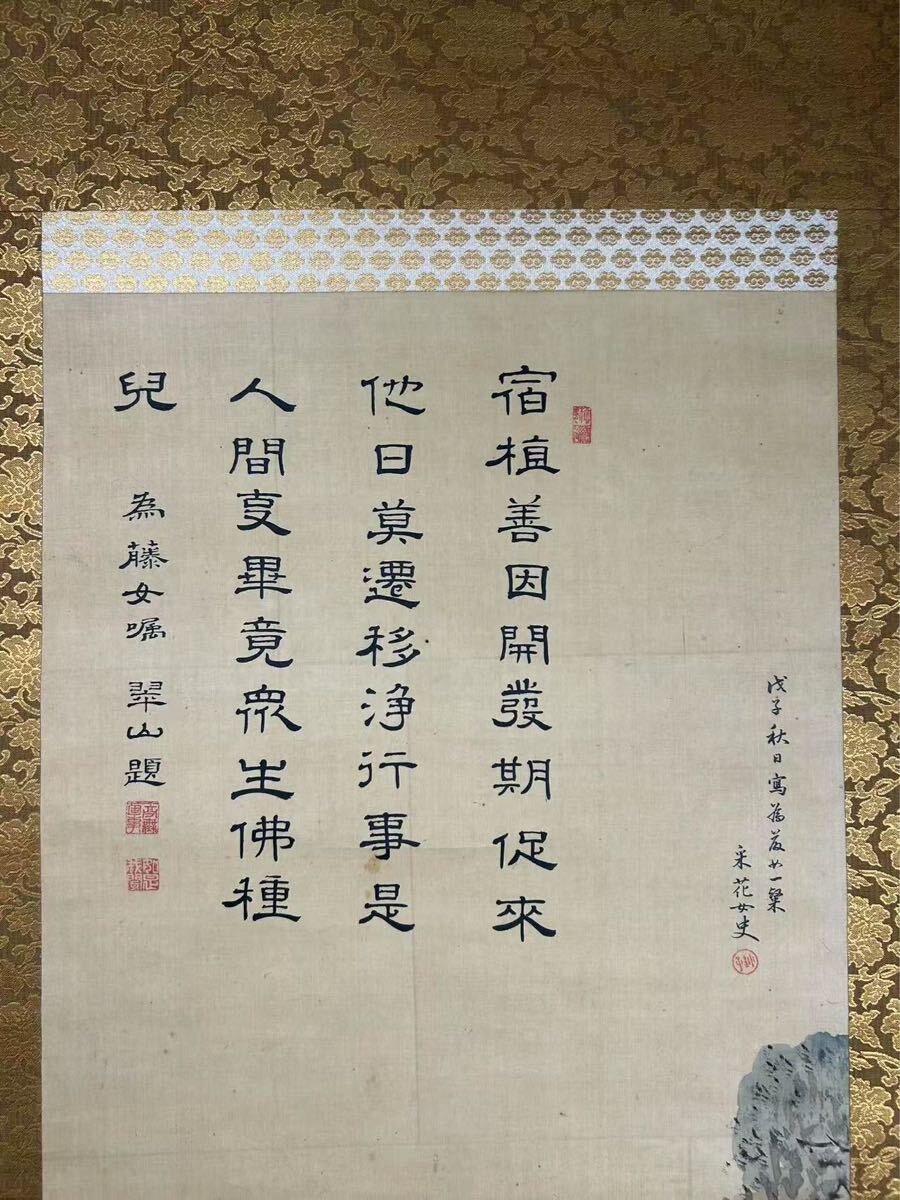 戊子秋日寫為女一粲
采花女史
宿植善因開發期促來
他日莫遷移浄行事是
人間叓畢竟衆生佛種
兒
為藤女嘱 翠山題